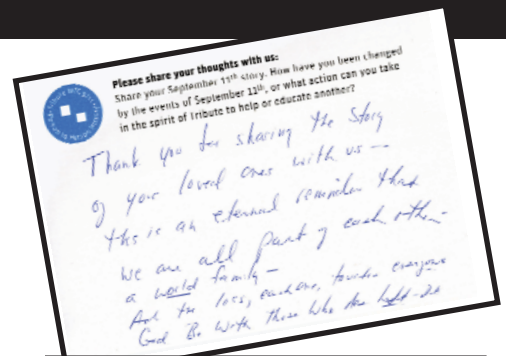 Please share your thoughts with us:
Share your September 11th story. How have you been changed
by the events of September 11th, or what action can you take
in the spirit of Tribute to help or educate another?
Thank you for sharing the Story
of your loved ones with us —
this is an eternal reminder that
we are all part of each other —
a world family —
And the loss, each one, touches everyone
God Be with those who are left -